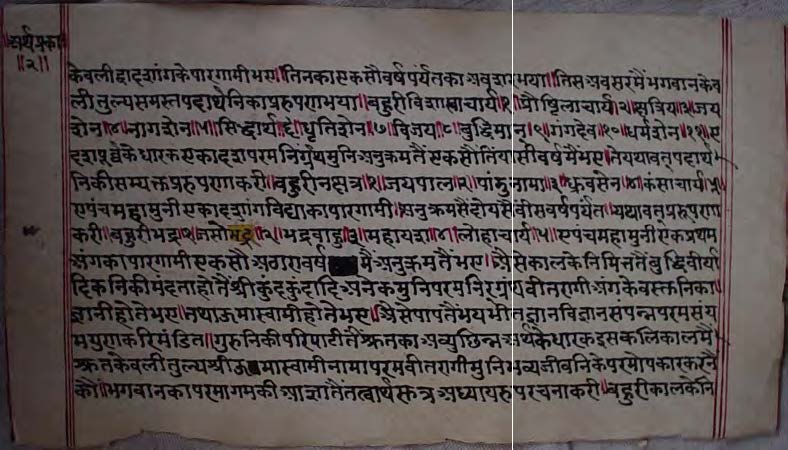 अर्थप्रका
॥२॥
केवली द्वादशांगके पारगामी भए॥तिनका एकसौ वर्ष पर्यंतका अवसर भया॥तिस अवसरमैं भगवान केव
ली तुल्य समस्त पदार्थनिका प्ररूपण भया॥बहुरी विशाखाचार्य १ प्रौष्ठिलाचार्य २ क्षत्रिय ३ जय
शेन ४ नागशेन ५ सिद्धार्थ ६ धृतिशेन ७ विजय ८ बुद्धिमान ९ गंगदेव १० धर्मशेन ११ ए
दशपूर्वके धारक एकादश परम निर्ग्रंथ मुनि अनुक्रमतैं एकसौ तियासी वर्षमैं भए॥ते यथावत् पदार्थ
निकी सम्यक्त प्ररूपणा करी॥बहुरी नक्षत्र १ जयपाल २ पांडुनामा ३ ध्रुवसेन ४ कंसाचार्य ५
ए पंच महामुनी एकादशांग विद्याका पारगामी॥अनुक्रमसैं दोयसै वीस वर्ष पर्यंत यथावत् प्ररूपणा
करी॥बहुरी भद्र १ जसोभद्र २ भद्रवाहु ३ महायश ४ लोहाचार्य ५ ए पंच महामुनी एक प्रथम
अंगका पारगामी एकसो अठारा वर्ष मैं अनुक्रमतैं भए॥अैसे कालके निमित्ततैं बुद्धि वीर्या
दिकनिकी मंदता होतैं श्री कुंदकुंदादि अनेक मुनि परम निर्ग्रंथ वीतरागी अंगके वस्तकनिका
ज्ञानी होते भए॥तथा ऊमास्वामी होते भए॥अैसे पापतैं भयभीत ज्ञान विज्ञान संपन्न परम संय
म गुणकरि मंडित॥गुरुनिकी परिपाटीतैं श्रुतका अव्युछिन्न अर्थके धारक इस कलिकालमैं
श्रुतकेवली तुल्य श्री ऊमास्वामी नामा परम वीतरागी मुनि भव्यजीवनिके परमोपकार करनै
कौं॥भगवानका परमागमकी आज्ञातैं तत्वार्थसूत्र अध्यायरुप रचना करी॥बहुरी कालके नि